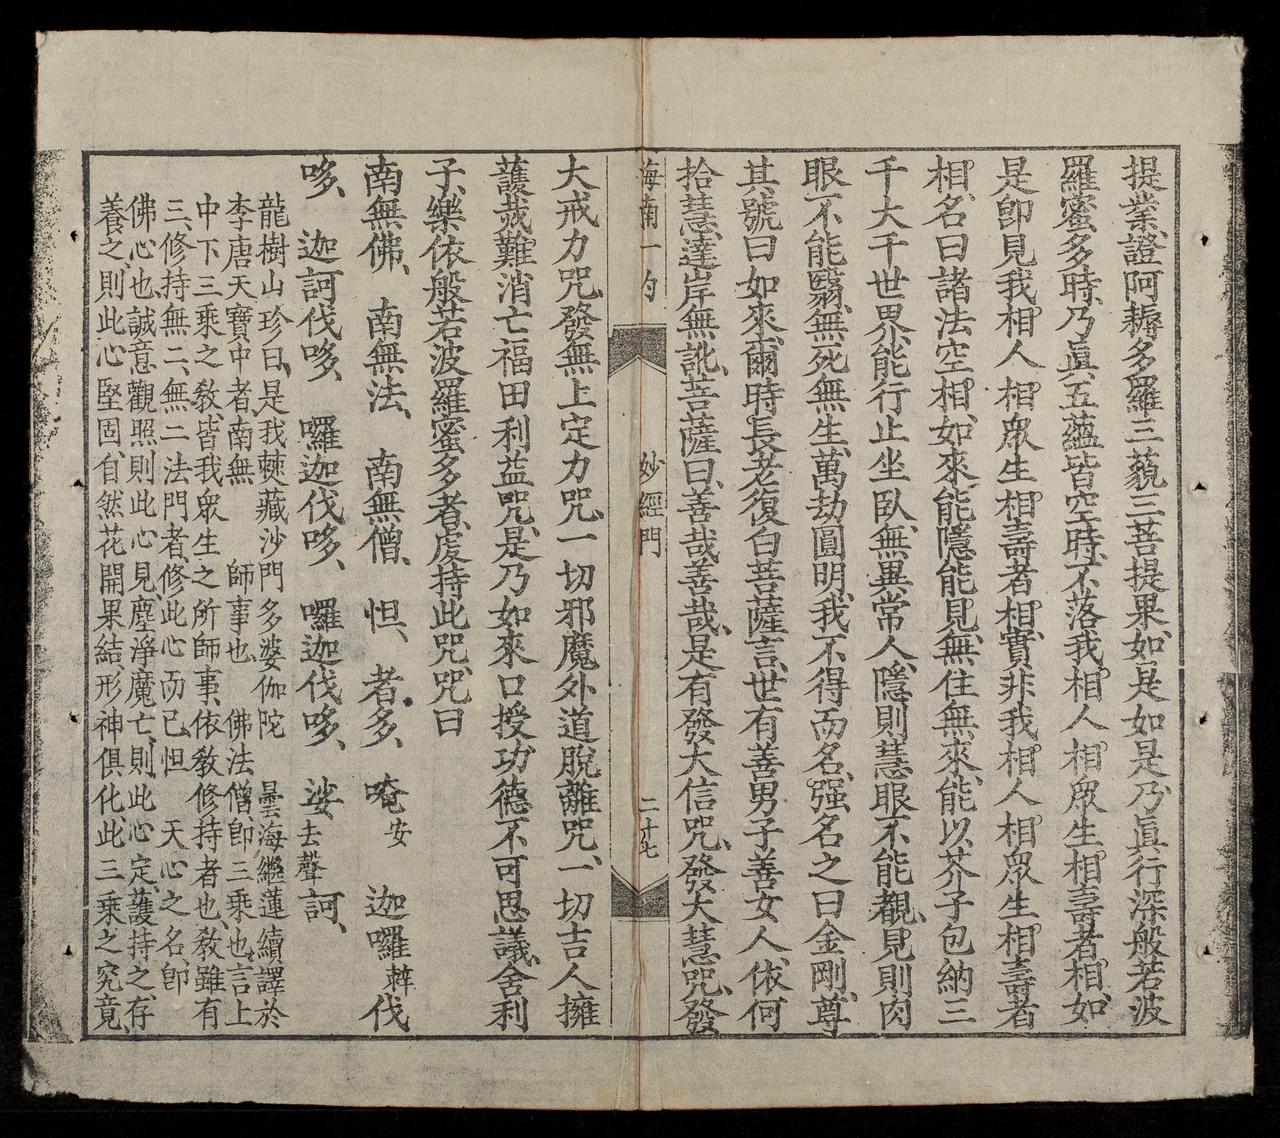 提業、證阿耨多羅三藐三菩提果、如是如是、乃眞行深般若波
羅蜜多時、乃眞五蘊皆空時、不落我相人相眾生相壽者相、如
是卽見我相人相眾生相壽者相、實非我相人相眾生相壽者
相、名曰諸法空相、如來能隱能見、無住無來、能以芥子包納三
千大千世界、能行止坐臥、無異常人、隱則慧眼不能覩、見則肉
眼不能翳、無死無生、萬劫圓明、我不得而名、强名之曰金剛、尊
其號曰如來、爾時長老復白菩薩言、世有善男子善女人、依何
拾慧、達岸無訛、菩薩曰、善哉善哉、是有發大信咒、發大慧咒、發
海南一勺 妙經門 二十七
大戒力咒、發無上定力咒、一切邪魔外道脫離咒、一切吉人擁
護哉、難消亡福田利益咒、是乃如來口授、功德不可思議、舍利
子、樂依般若波羅蜜多者、虔持此咒、咒曰
南無佛、 南無法、 南無僧、 怛、 者多、 唵安 迦囉辢伐
哆、 迦訶伐哆、 囉迦伐哆、 囉迦伐哆、 娑去聲訶、
龍樹山珍曰、是我𦽦藏沙門 多婆伽陀 曇海繼蓮續譯於
李唐天寶中者、南無 師事也、 佛法僧卽三乘也、言上
中下三乘之教、皆我眾生之所師事、依教修持者也、教雖有
三、修持無二、無二法門者、修此心而已、怛 天心之名、卽
佛心也、誠意觀照、則此心見、塵淨魔亡、則此心定、護持之、存
養之、則此心堅固、自然花開果結、形神俱化、此三乘之究竟、